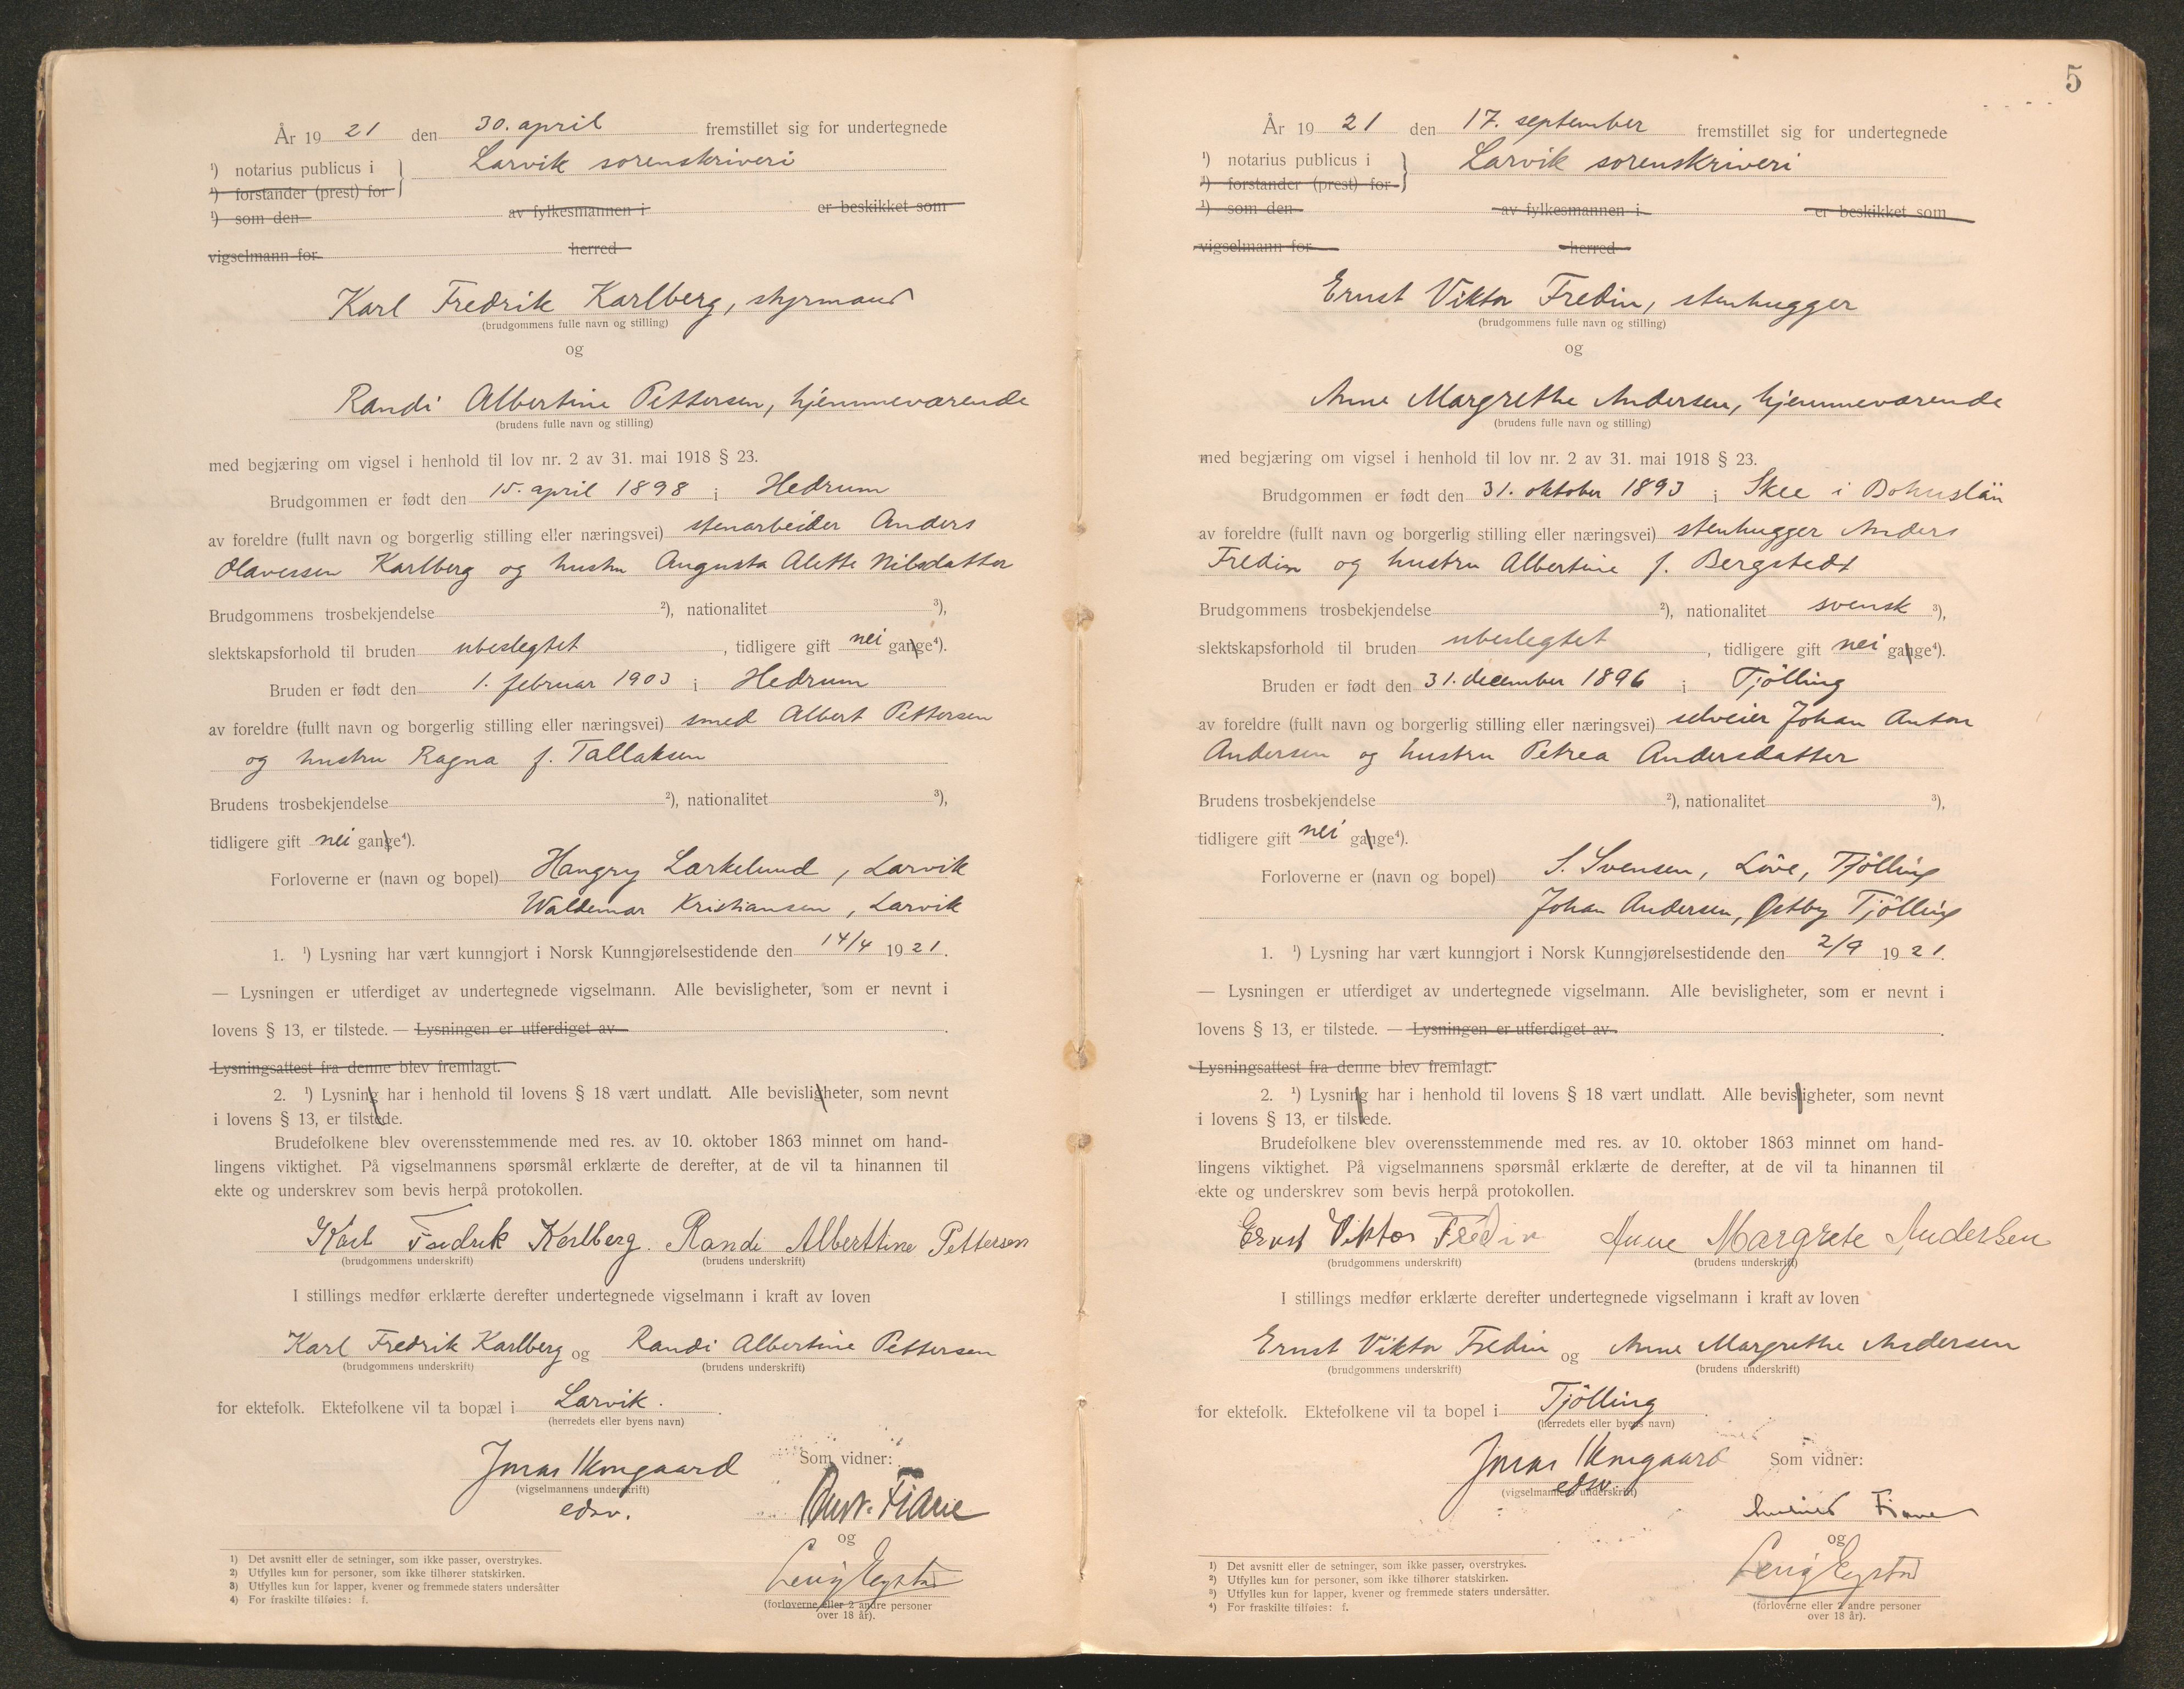 År 19 21 den 30. april fremstillet sig for undertegnede
¹) notarius publicus i } Larvik sorenskriveri
¹) forstander (prest) for
¹) som den av fylkesmannen i er beskikket som
vigselmann for herred
Karl Fredrik Karlberg, styrmand
(brudgommens fulle navn og stilling)
og
Randi Albertine Pettersen, hjemmeværende
(brudens fulle navn og stilling)
med begjæring om vigsel i henhold til lov nr. 2 av 31. mai 1918 § 23.
Brudgommen er født den 15. april 1898 i Hedrum
av foreldre (fullt navn og borgerlig stilling eller næringsvei) stenarbeider Anders
Olavessen Karlberg og hustru Augusta Alette Nilsdatter
Brudgommens trosbekjendelse ²), nationalitet ³),
slektskapsforhold til bruden ubeslegtet, tidligere gift nei gange⁴).
Bruden er født den 1. februar 1903 i Hedrum
av foreldre (fullt navn og borgerlig stilling eller næringsvei) smed Albert Pettersen
og hustru Ragna f. Tallaksen
Brudens trosbekjendelse ²), nationalitet ³),
tidligere gift nei gange⁴).
Forloverne er (navn og bopel) Hangry Larkelund, Larvik
Waldemar Kristiansen, Larvik
1. ¹) Lysning har vært kunngjort i Norsk Kunngjørelsestidende den 14/4 19 21.
— Lysningen er utferdiget av undertegnede vigselmann. Alle bevisligheter, som er nevnt i
lovens § 13, er tilstede. — Lysningen er utferdiget av .
Lysningsattest fra denne blev fremlagt.
2. ¹) Lysning har i henhold til lovens § 18 vært undlatt. Alle bevisligheter, som nevnt
i lovens § 13, er tilstede.
Brudefolkene blev overensstemmende med res. av 10. oktober 1863 minnet om hand-
lingens viktighet. På vigselmannens spørsmål erklærte de derefter, at de vil ta hinannen til
ekte og underskrev som bevis herpå protokollen.
Karl Fredrik Karlberg. Randi Alberttine Pettersen
(brudgommens underskrift) (brudens underskrift)
I stillings medfør erklærte derefter undertegnede vigselmann i kraft av loven
Karl Fredrik Karlberg og Randi Albertine Pettersen
(brudgommens underskrift) (brudens underskrift)
for ektefolk. Ektefolkene vil ta bopæl i Larvik.
(herredets eller byens navn)
Jonas Skougaard Som vidner:
(vigselmannens underskrift)
edsv.
Fiane
og
(forloverne eller 2 andre personer
over 18 år).
1) Det avsnitt eller de setninger, som ikke passer, overstrykes.
2) Utfylles kun for personer, som ikke tilhører statskirken.
3) Utfylles kun for lapper, kvener og fremmede staters undersåtter
4) For fraskilte tilføies: f.
5
År 19 21 den 17. september fremstillet sig for undertegnede
¹) notarius publicus i } Larvik sorenskriveri
¹) forstander (prest) for
¹) som den av fylkesmannen i er beskikket som
vigselmann for herred
Ernst Viktor Fredin, stenhugger
(brudgommens fulle navn og stilling)
og
Anne Margrethe Andersen, hjemmeværende
(brudens fulle navn og stilling)
med begjæring om vigsel i henhold til lov nr. 2 av 31. mai 1918 § 23.
Brudgommen er født den 31. oktober 1893 i Skee i Bohuslän
av foreldre (fullt navn og borgerlig stilling eller næringsvei) stenhugger Anders
Fredin og hustru Albertine f. Bergstedt
Brudgommens trosbekjendelse ²), nationalitet svensk ³),
slektskapsforhold til bruden ubeslegtet, tidligere gift nei gange⁴).
Bruden er født den 31. december 1896 i Tjölling
av foreldre (fullt navn og borgerlig stilling eller næringsvei) selveier Johan Anton
Andersen og hustru Petrea Andersdatter
Brudens trosbekjendelse ²), nationalitet ³),
tidligere gift nei gange⁴).
Forloverne er (navn og bopel) S. Svensen, Löve, Tjölling
Johan Andersen, Østby Tjölling
1. ¹) Lysning har vært kunngjort i Norsk Kunngjørelsestidende den 2/9 19 21.
— Lysningen er utferdiget av undertegnede vigselmann. Alle bevisligheter, som er nevnt i
lovens § 13, er tilstede. — Lysningen er utferdiget av .
Lysningsattest fra denne blev fremlagt.
2. ¹) Lysning har i henhold til lovens § 18 vært undlatt. Alle bevisligheter, som nevnt
i lovens § 13, er tilstede.
Brudefolkene blev overensstemmende med res. av 10. oktober 1863 minnet om hand-
lingens viktighet. På vigselmannens spørsmål erklærte de derefter, at de vil ta hinannen til
ekte og underskrev som bevis herpå protokollen.
Ernst Viktor Fredin Anne Margrete Andersen
(brudgommens underskrift) (brudens underskrift)
I stillings medfør erklærte derefter undertegnede vigselmann i kraft av loven
Ernst Viktor Fredin og Anne Margrethe Andersen
(brudgommens underskrift) (brudens underskrift)
for ektefolk. Ektefolkene vil ta bopel i Tjölling
(herredets eller byens navn)
Jonas Skougaard Som vidner:
(vigselmannens underskrift)
edsv.
Fiane
og
(forloverne eller 2 andre personer
over 18 år).
¹) Det avsnitt eller de setninger, som ikke passer, overstrykes.
²) Utfylles kun for personer, som ikke tilhører statskirken.
³) Utfylles kun for lapper, kvener og fremmede staters undersåtter.
⁴) For fraskilte tilføies: f.